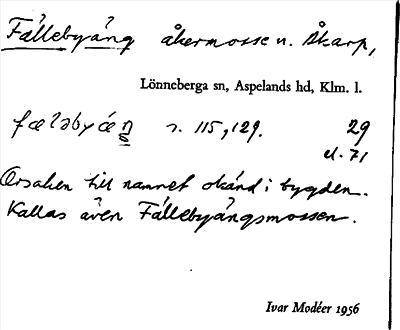 Fällebyäng åkermosse n. Åkarp,
Lönneberga sn, Aspelands hd, Klm. l.
s. 115, 129. 29
d. 71
Orsaken till namnet okänd i bygden.
Kallas även Fällebyängsmossen.
Ivar Modéer 1956